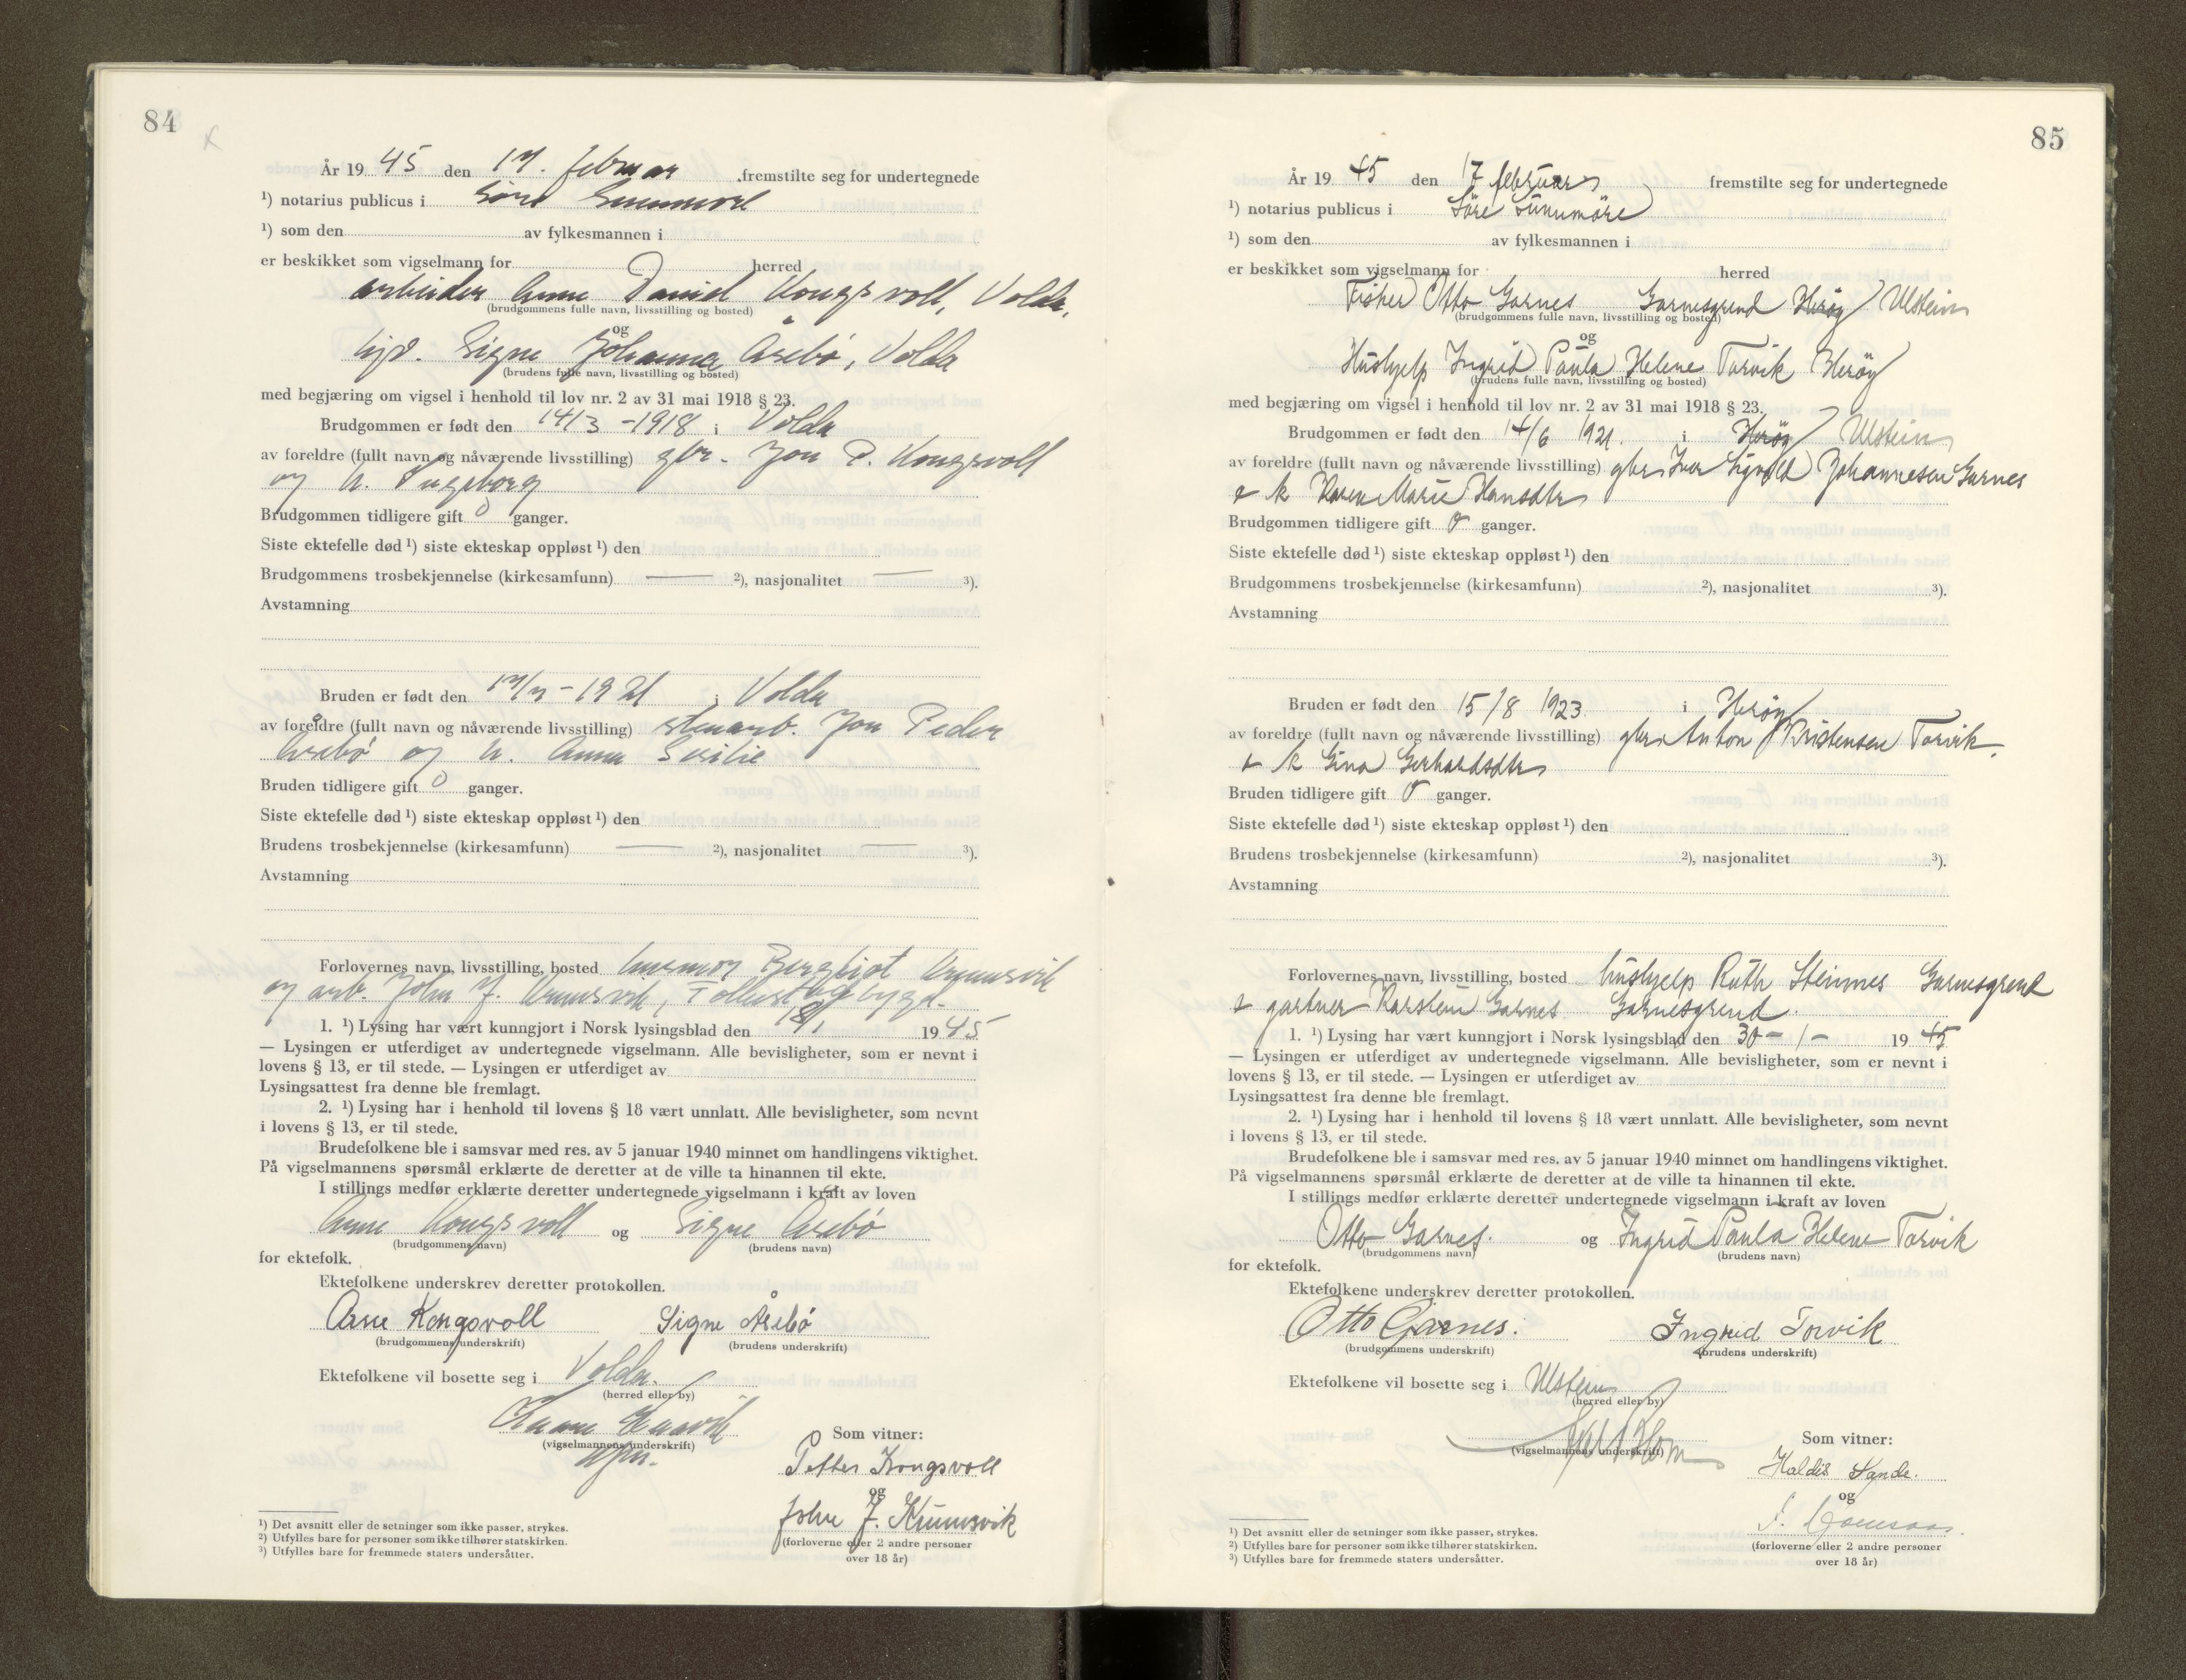 84
År 1945 den 17. februar fremstilte seg for undertegnede
¹) notarius publicus i Søre Sunnmøre
¹) som den av fylkesmannen i
er beskikket som vigselmann for herred
arbeider Arne Daniel Kongsvoll, Volda,
(brudgommens fulle navn, livsstilling og bosted)
og
hjd. Signe Johanna Åsebø, Volda
(brudens fulle navn, livsstilling og bosted)
med begjæring om vigsel i henhold til lov nr. 2 av 31 mai 1918 § 23.
Brudgommen er født den 14/3 -1918 i Volda
av foreldre (fullt navn og nåværende livsstilling) gbr. Jon P. Kongsvoll
og h. Ingeborg
Brudgommen tidligere gift 0 ganger.
Siste ektefelle død ¹) siste ekteskap oppløst ¹) den
Brudgommens trosbekjennelse (kirkesamfunn) — ²), nasjonalitet — ³).
Avstamning
Bruden er født den 17/7 - 1921 i Volda
av foreldre (fullt navn og nåværende livsstilling) stenarb. Jon Peder
Åsebø og h. Anna Sesilie
Bruden tidligere gift 0 ganger.
Siste ektefelle død ¹) siste ekteskap oppløst ¹) den
Brudens trosbekjennelse (kirkesamfunn) — ²), nasjonalitet — ³).
Avstamning
Forlovernes navn, livsstilling, bosted husmor Bergljot Krumsvik
og arb. John J. Krumsvik,
1. ¹) Lysing har vært kunngjort i Norsk lysingsblad den 18/1 1945
— Lysingen er utferdiget av undertegnede vigselmann. Alle bevisligheter, som er nevnt i
lovens § 13, er til stede. — Lysingen er utferdiget av
Lysingsattest fra denne ble fremlagt.
2. ¹) Lysing har i henhold til lovens § 18 vært unnlatt. Alle bevisligheter, som nevnt
i lovens § 13, er til stede.
Brudefolkene ble i samsvar med res. av 5 januar 1940 minnet om handlingens viktighet.
På vigselmannens spørsmål erklærte de deretter at de ville ta hinannen til ekte.
I stillings medfør erklærte deretter undertegnede vigselmann i kraft av loven
Arne Kongsvoll og Signe Åsebø
(brudgommens navn) (brudens navn)
for ektefolk.
Ektefolkene underskrev deretter protokollen.
Arne Kongsvoll Signe Åsebø
(brudgommens underskrift) (brudens underskrift)
Ektefolkene vil bosette seg i Volda.
(herred eller by)
(vigselmannens underskrift)
Som vitner:
Petter Kongsvoll
og
John J. Krumsvik
(forloverne eller 2 andre personer
over 18 år)
¹) Det avsnitt eller de setninger som ikke passer, strykes.
²) Utfylles bare for personer som ikke tilhører statskirken.
³) Utfylles bare for fremmede staters undersåtter.
85
År 1945 den 17 februar fremstilte seg for undertegnede
¹) notarius publicus i Söre Sunnmöre
¹) som den av fylkesmannen i
er beskikket som vigselmann for herred
Fisker Otto Garnes Garnesgrend Herøy Ulstein
(brudgommens fulle navn, livsstilling og bosted)
og
Hushjelp Ingrid Paula Helene Torvik Herøy
(brudens fulle navn, livsstilling og bosted)
med begjæring om vigsel i henhold til lov nr. 2 av 31 mai 1918 § 23.
Brudgommen er født den 14/6 1921. i Herøy Ulstein
av foreldre (fullt navn og nåværende livsstilling) gbr. Ivar Sigvald Johannesen Garnes
& k Karen Marie Hansdtr
Brudgommen tidligere gift 0 ganger.
Siste ektefelle død ¹) siste ekteskap oppløst ¹) den
Brudgommens trosbekjennelse (kirkesamfunn) ²), nasjonalitet ³).
Avstamning
Bruden er født den 15/8 1923 i Herøy
av foreldre (fullt navn og nåværende livsstilling) gbr. Anton Kristensen Torvik
& k Gina Gerhardsdtr
Bruden tidligere gift 0 ganger.
Siste ektefelle død ¹) siste ekteskap oppløst ¹) den
Brudens trosbekjennelse (kirkesamfunn) ²), nasjonalitet ³).
Avstamning
Forlovernes navn, livsstilling, bosted hushjelp Ruth Steinnes Garnesgrend
& gartner Karstein Garnes Garnesgrend.
1. ¹) Lysing har vært kunngjort i Norsk lysingsblad den 30 - 1 - 1945
— Lysingen er utferdiget av undertegnede vigselmann. Alle bevisligheter, som er nevnt i
lovens § 13, er til stede. — Lysingen er utferdiget av
Lysingsattest fra denne ble fremlagt.
2. ¹) Lysing har i henhold til lovens § 18 vært unnlatt. Alle bevisligheter, som nevnt
i lovens § 13, er til stede.
Brudefolkene ble i samsvar med res. av 5 januar 1940 minnet om handlingens viktighet.
På vigselmannens spørsmål erklærte de deretter at de ville ta hinannen til ekte.
I stillings medfør erklærte deretter undertegnede vigselmann i kraft av loven
Otto Garnes. og Ingrid Paula Helene Torvik
(brudgommens navn) (brudens navn)
for ektefolk.
Ektefolkene underskrev deretter protokollen.
Otto Garnes. Ingrid Torvik
(brudgommens underskrift) (brudens underskrift)
Ektefolkene vil bosette seg i Ulstein
(herred eller by)
(vigselmannens underskrift)
Som vitner:
Haldis Sande.
og
(forloverne eller 2 andre personer
over 18 år)
¹) Det avsnitt eller de setninger som ikke passer, strykes.
²) Utfylles bare for personer som ikke tilhører statskirken.
³) Utfylles bare for fremmede staters undersåtter.